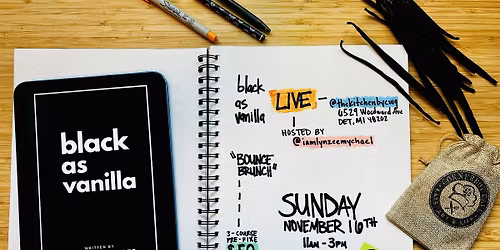 black
as
vanilla
WRITTEN BY
black
as
vanilla
LIVE
@thekitchenbycwg
6529 Woodward Ave
DET, MI 48202
HOSTED BY
@iamlynzeemychael
"BOUNCE
BRUNCH"
3-COURSE
PRE-FIXE
$50
SUNDAY
NOVEMBER 16TH
11AM - 3PM